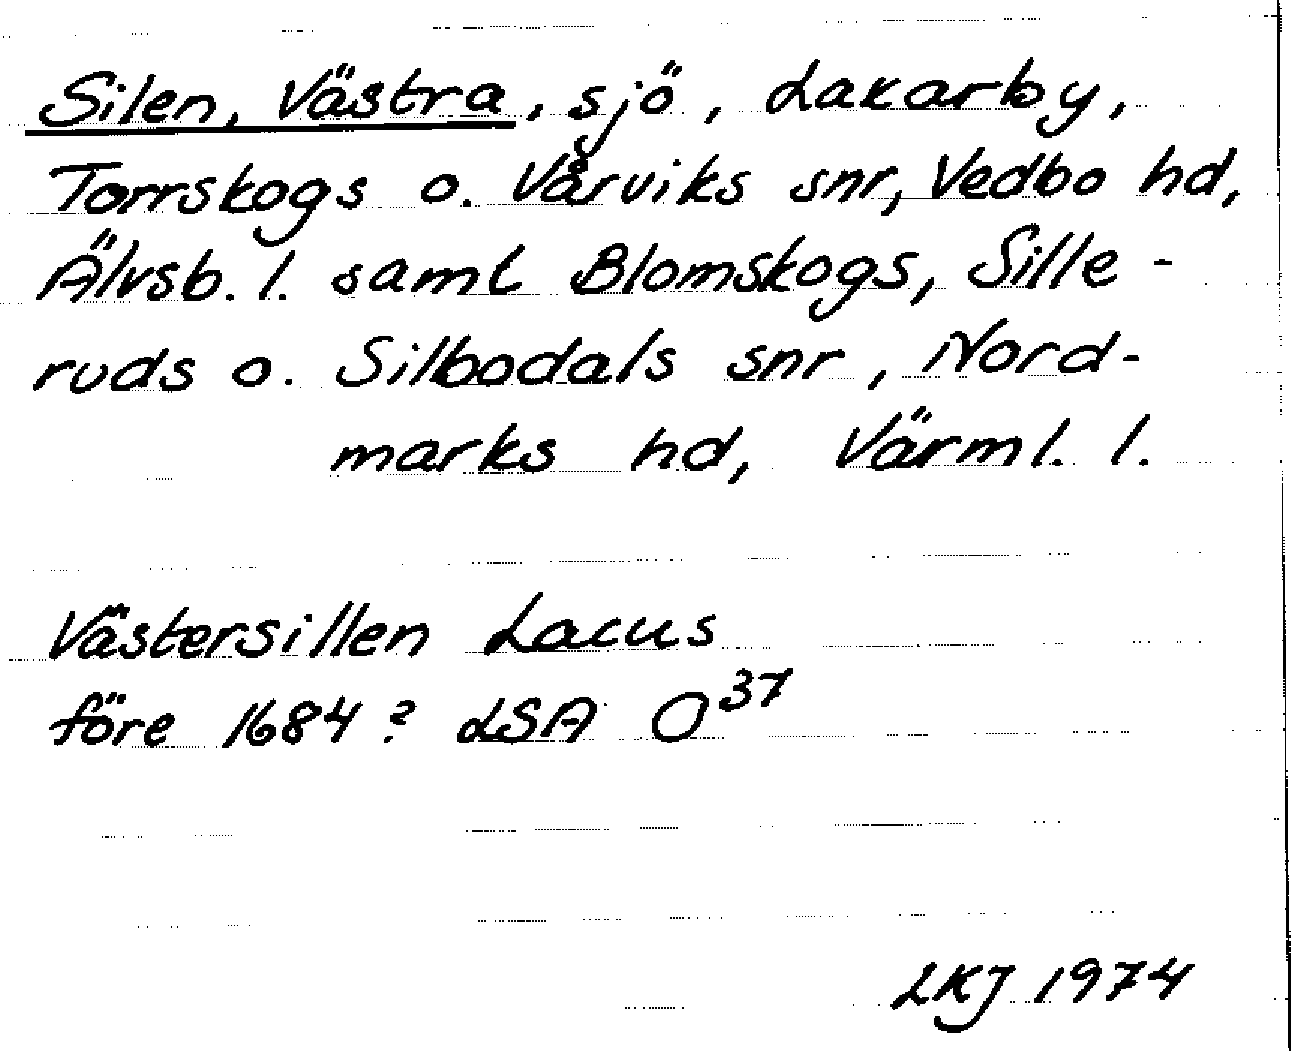 Silen, Västra, sjö, Lakarby,
Torrskogs o. Vårviks snr, Vedbo hd,
Älvsb. l. samt Blomskogs, Sille-
ruds o. Silbodals snr, Nord-
marks hd, Värml. l.
Västersillen Lacus
före 1684? LSA O³⁷
LKJ 1974